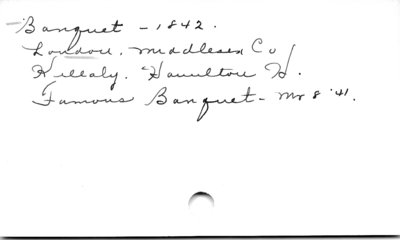 Banquet - 1842.
London, Middlesex Co
Killaly, Hamilton H.
Famous Banquet - Mr 8 '41.